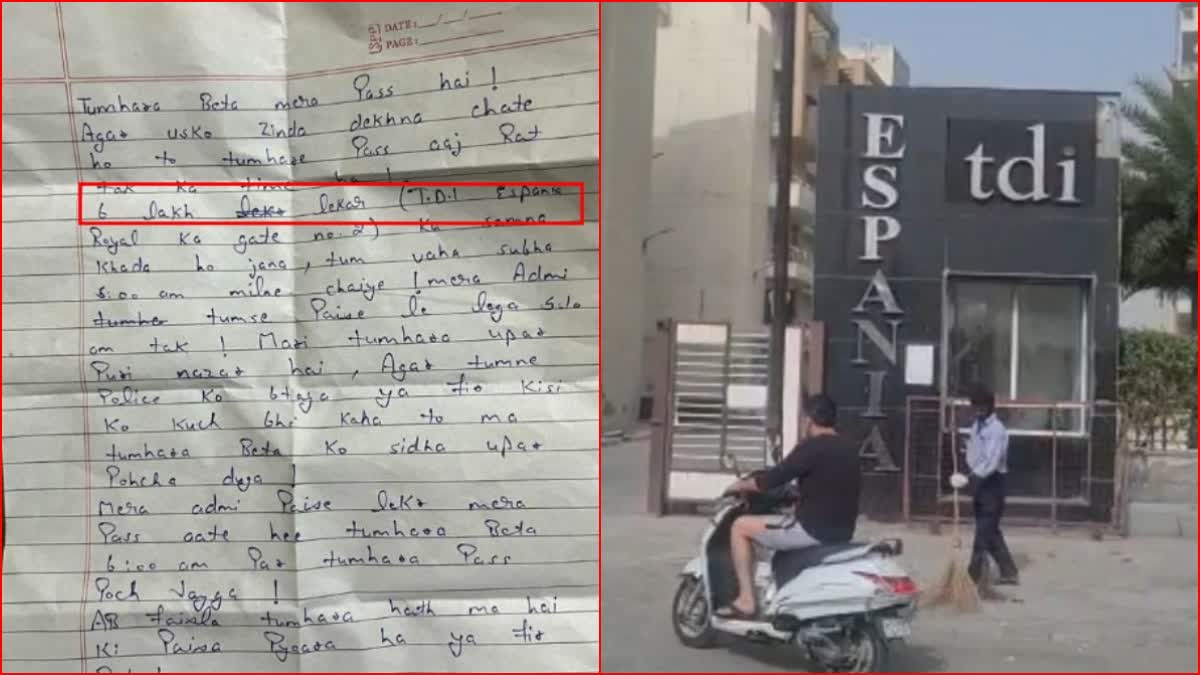 DATE: __/__/__
PAGE:
Tumhara Beta mera Pass hai !
Agar usko Zinda dekhna chate
ho to tumhare Pass aaj Rat
tak ka time ha !
6 lakh lekar (T.D.I Espania
Royal ka gate no. 2) ka samna
Khada ho jana, tum vaha subha
5:00 am milne chaiye ! mera Admi
tumhe tumse Paise le lega 5:10
am tak ! Mari tumhara upar
Puri nazar hai, Agar tumne
Police ko btaja ya fir kisi
Ko kuch bhi kaha to ma
tumhara Beta ko sidha upar
Pohcha duga !
Mera admi Paise lekr mera
Pass aate hee tumhara Beta
6:00 am Par tumhara Pass
Poch Jayga !
AB faisla tumhara hath ma hai
Ki Paisa Pyaara ha ya fir
ESPANIA
tdi